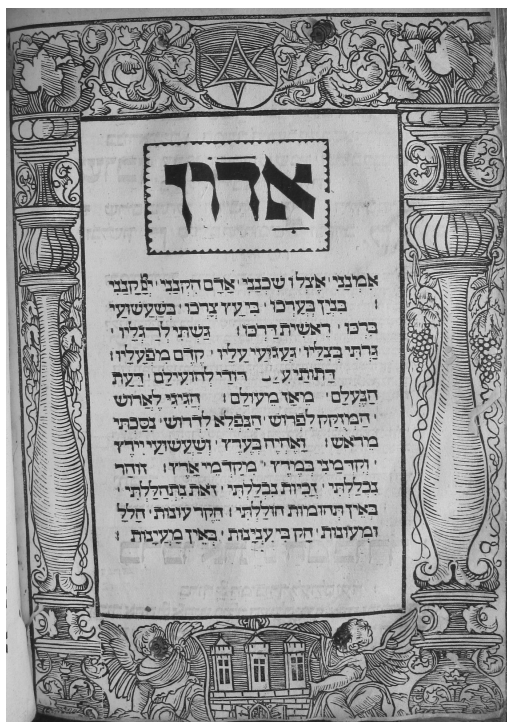 אדון
אמנני אצלו שכנני אדם הקנני
בנין בערכו בי עץ צרכו בשעשועי
ברכו ראשית דרכו׃ גשתי לרגליו
גרתי בצליו געגועי עליו קדם מפעליו׃
דתותי דודי להועילם דעת
הנעלם מאז מעולם׃ הגיגי לארוש
המזקק לפרוש הנפלא לדרוש נסכתי
מראש׃ ואהיה בערץ ושעשועי וירץ
וקדמני במרץ מקדמי ארץ׃ זוהר
נכללתי זכיות נכללתי זאת נתהללתי
באין תהומות חוללתי׃ חקר עונות חלל
ומעונות חק בי ענינות באין מעינות׃